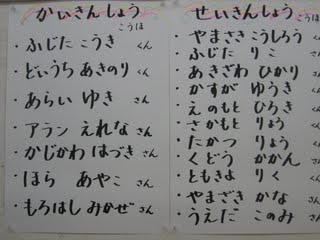 かいきんしょう
こうほ
・ふじた こうき くん
・どいうち あきのり くん
・あらい ゆき さん
・アラン えれな さん
・かじかわ はづき さん
・ほら あやこ さん
・もろはし みかぜ さん
せいきんしょう
こうほ
・やまざき こうしろう くん
・ふじた りこ さん
・あきざわ ひかり さん
・かすが ゆうき くん
・えのもと ひろき くん
・さかもと りょう くん
・たかつ りょう くん
・くどう かかん くん
・ともきよ りく くん
・やまざき かな さん
・うえだ このみ さん